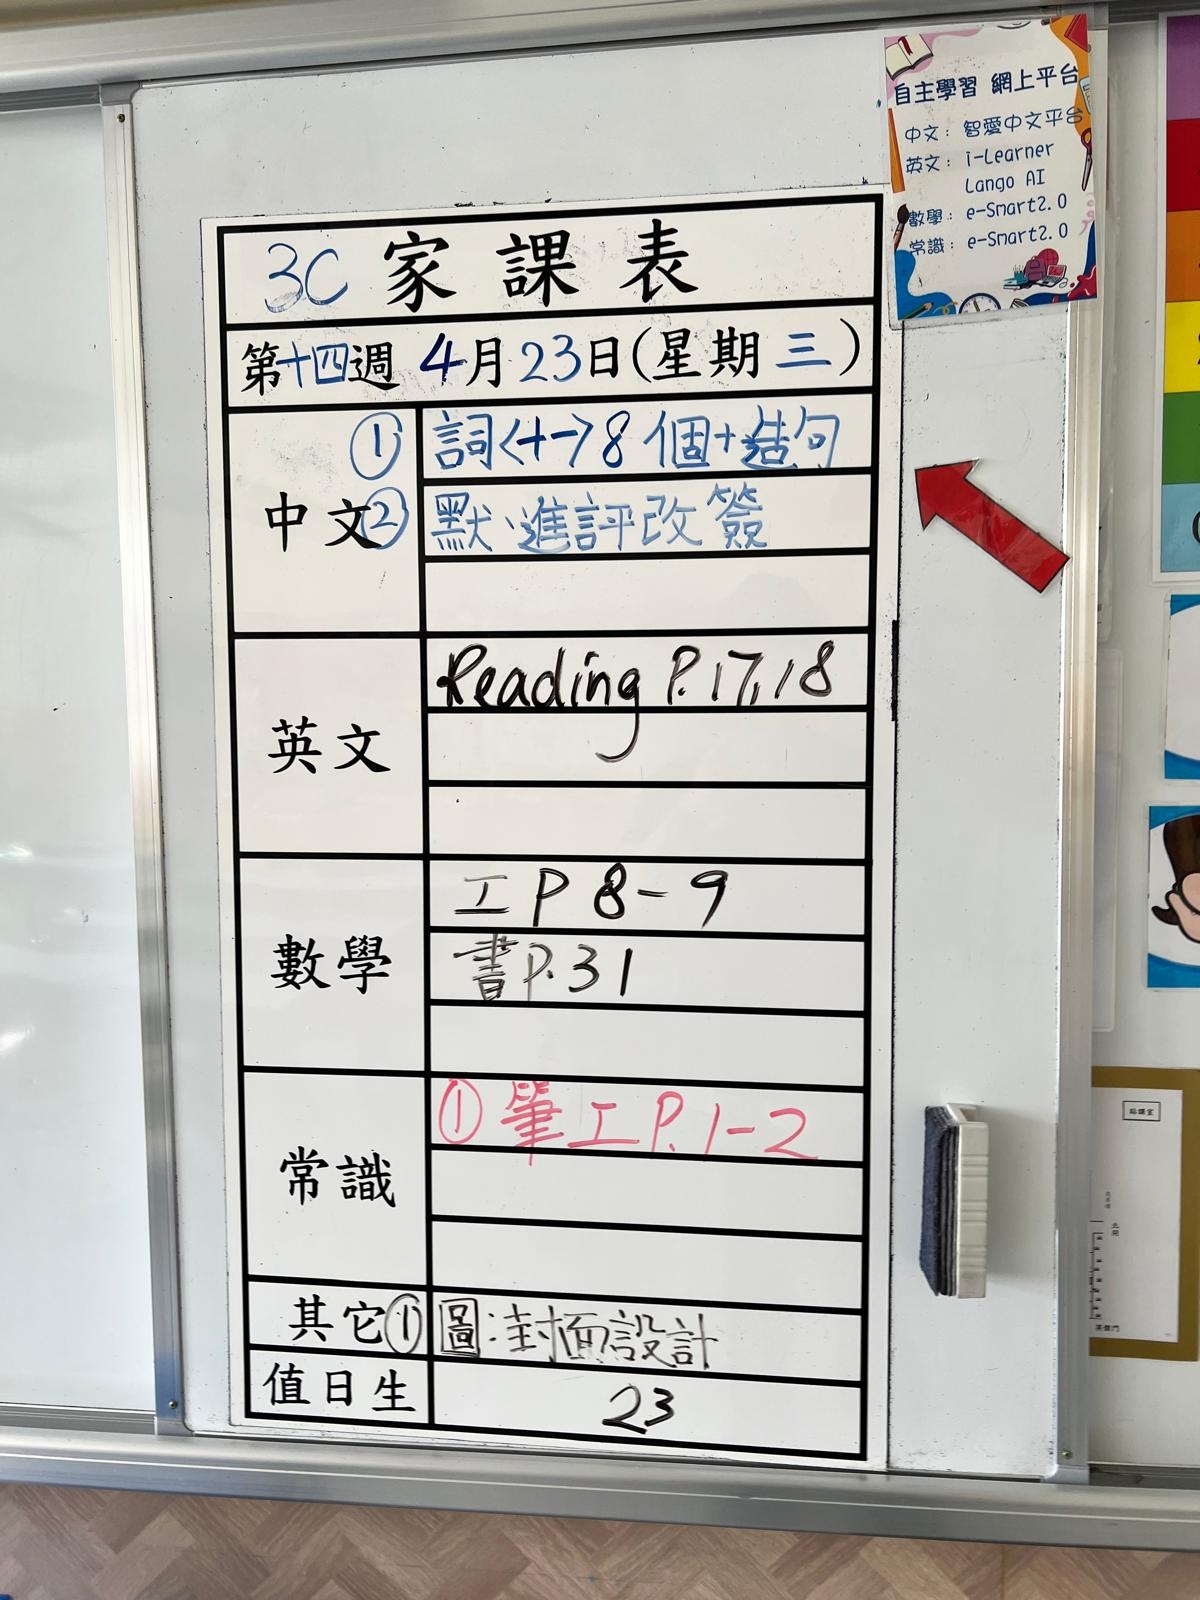 自主學習 網上平台
中文：智愛中文平台
英文：i-Learner
Lango AI
數學：e-Smart2.0
常識：e-Smart2.0
3C 家課表
第十四週 4月23日(星期三)
中文
① 詞<十一>8個+造句
② 默、進評改簽
英文
Reading P.17,18
數學
工P 8-9
書P.31
常識
① 筆工P.1-2
其它 ① 圖:封面設計
值日生 23